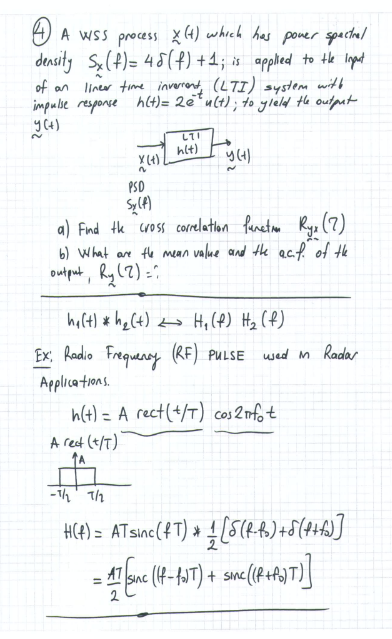 ④ A WSS process x(t) which has power spectral
density Sx(f) = 4δ(f) + 1; is applied to the input
of an linear time invarant (LTI) system with
impulse response h(t) = 2e^-t u(t); to yield the output
y(t)
LTI
h(t)
x(t)
y(t)
PSD
Sx(f)
a) Find the cross correlation function Ryx(τ)
b) What are the mean value and the a.c.f. of the
output, Ry(τ) = ?
h₁(t) * h₂(t) ↔ H₁(f) H₂(f)
Ex: Radio Frequency (RF) PULSE used in Radar
Applications.
h(t) = A rect(t/T) cos2πf₀t
A rect(t/T)
A
-T/2 T/2
H(f) = AT sinc(fT) * 1/2 [δ(f-f₀) + δ(f+f₀)]
= AT/2 [sinc((f-f₀)T) + sinc((f+f₀)T)]